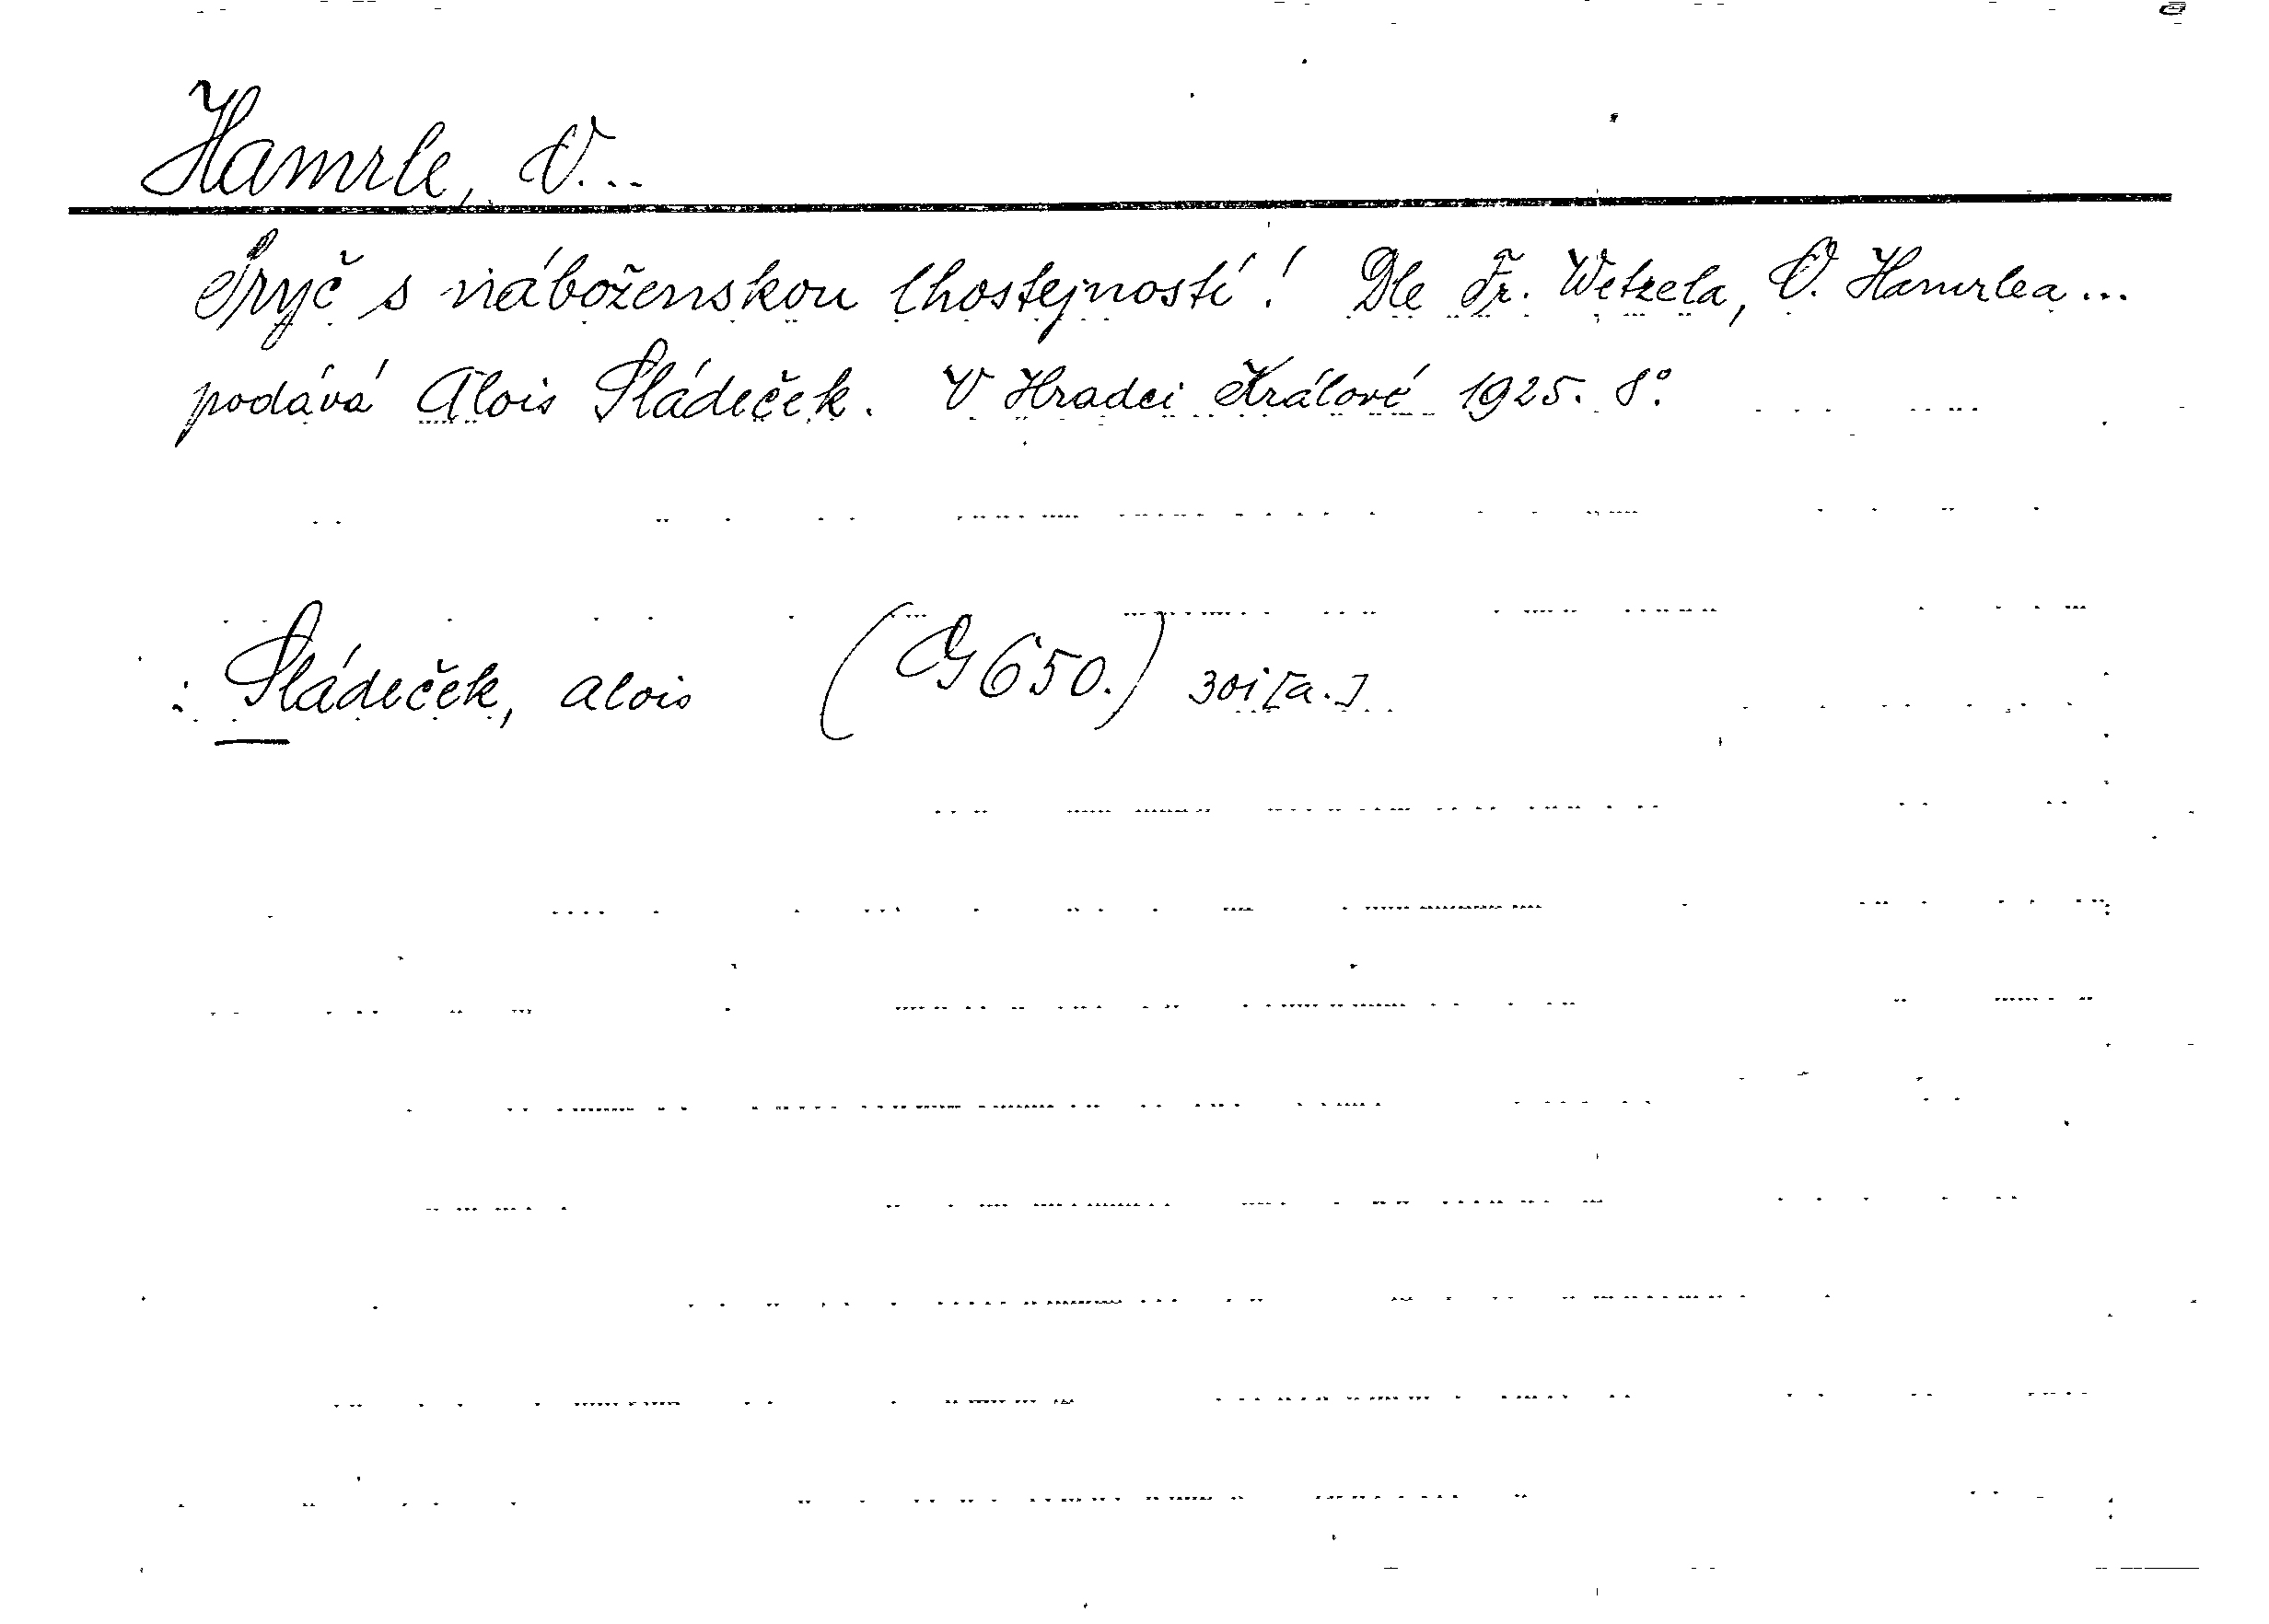 Hamrle, V...
Pryč s náboženskou lhostejností! Dle Fr. Wetzela, V. Hamrlea...
podává Alois Sládeček. V Hradci Králové 1925. 8°.
: Sládeček, Alois (G 650.) 30i[a.]